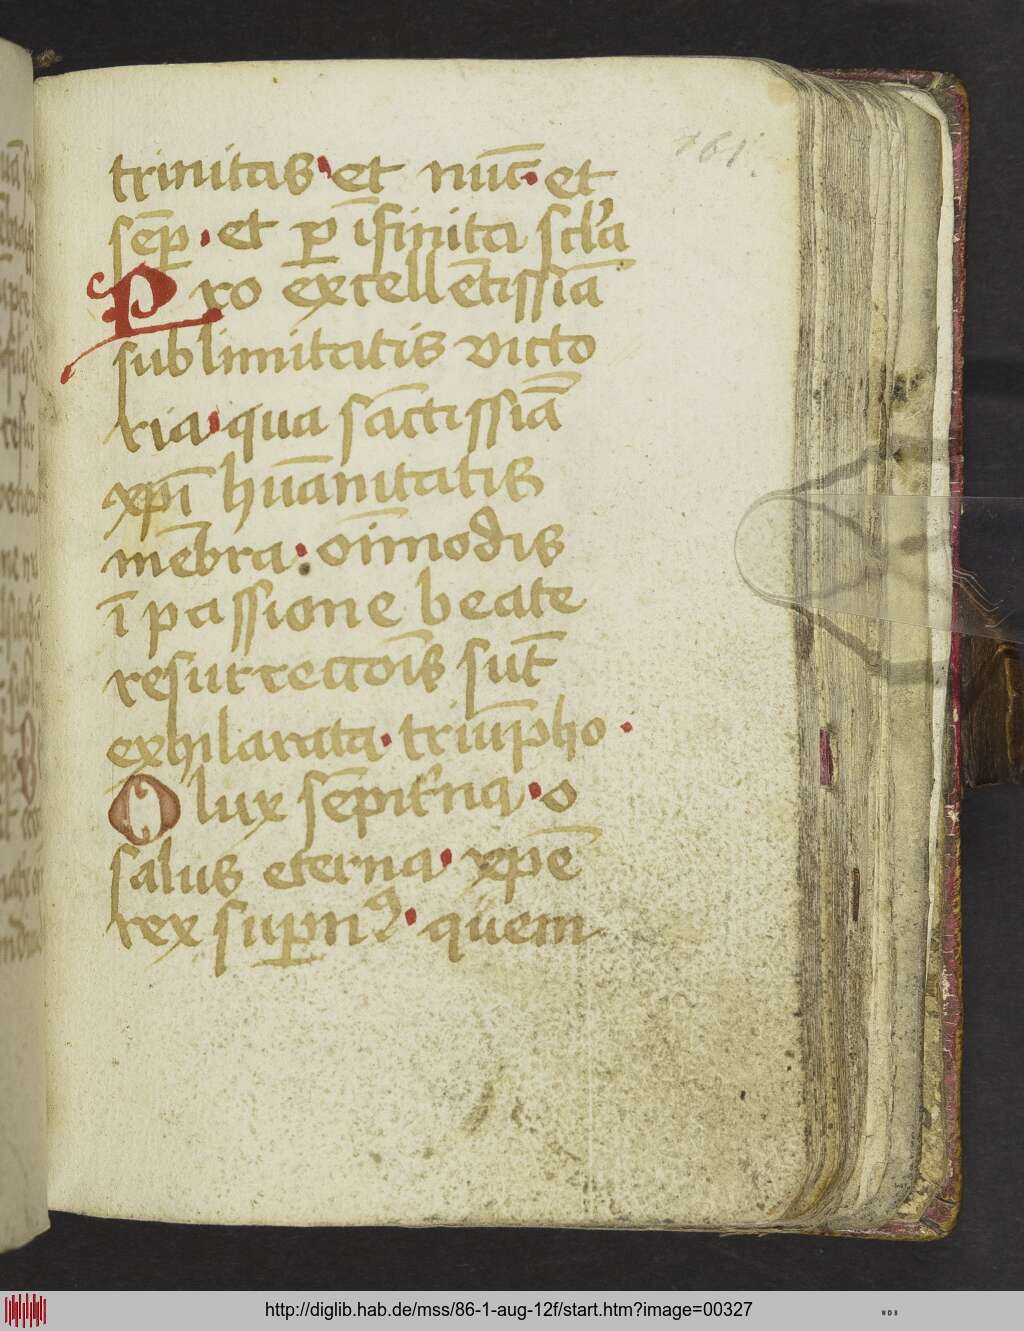 161
trinitas · et nūc · et
sēp · et ꝑ īfinita scl'a
Pro excellētissiā
sublimitatis victo
ria · qua sāctissiā
xp̄i hūanitatis
mēbra · oīmodis
ī passione beate
resurrectōis sūt
exhilarata · triūpho ·
O lux sēpit'na · o
salus eterna · xp̄e
rex suꝑnꝰ · quem
http://diglib.hab.de/mss/86-1-aug-12f/start.htm?image=00327